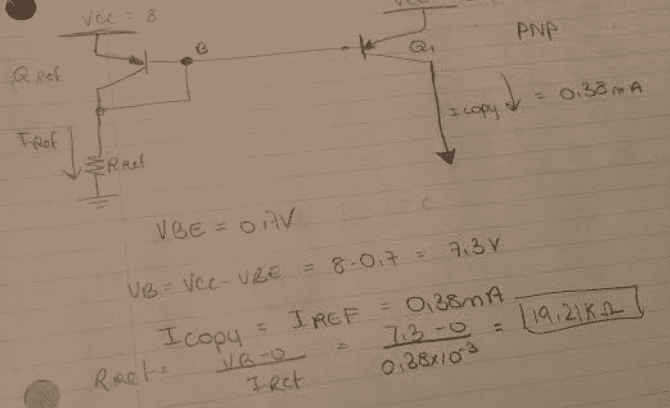 VCC = 8
VCC
PNP
B
Q1
QRef
Icopy = 0.38mA
IRef
RRef
VBE = 0.7V
VB = VCC - VBE = 8-0.7 = 7.3V
Icopy = IREF = 0.38mA
RRef = VB-0 / IRef = 7.3-0 / 0.38x10^-3 = 19.21KΩ